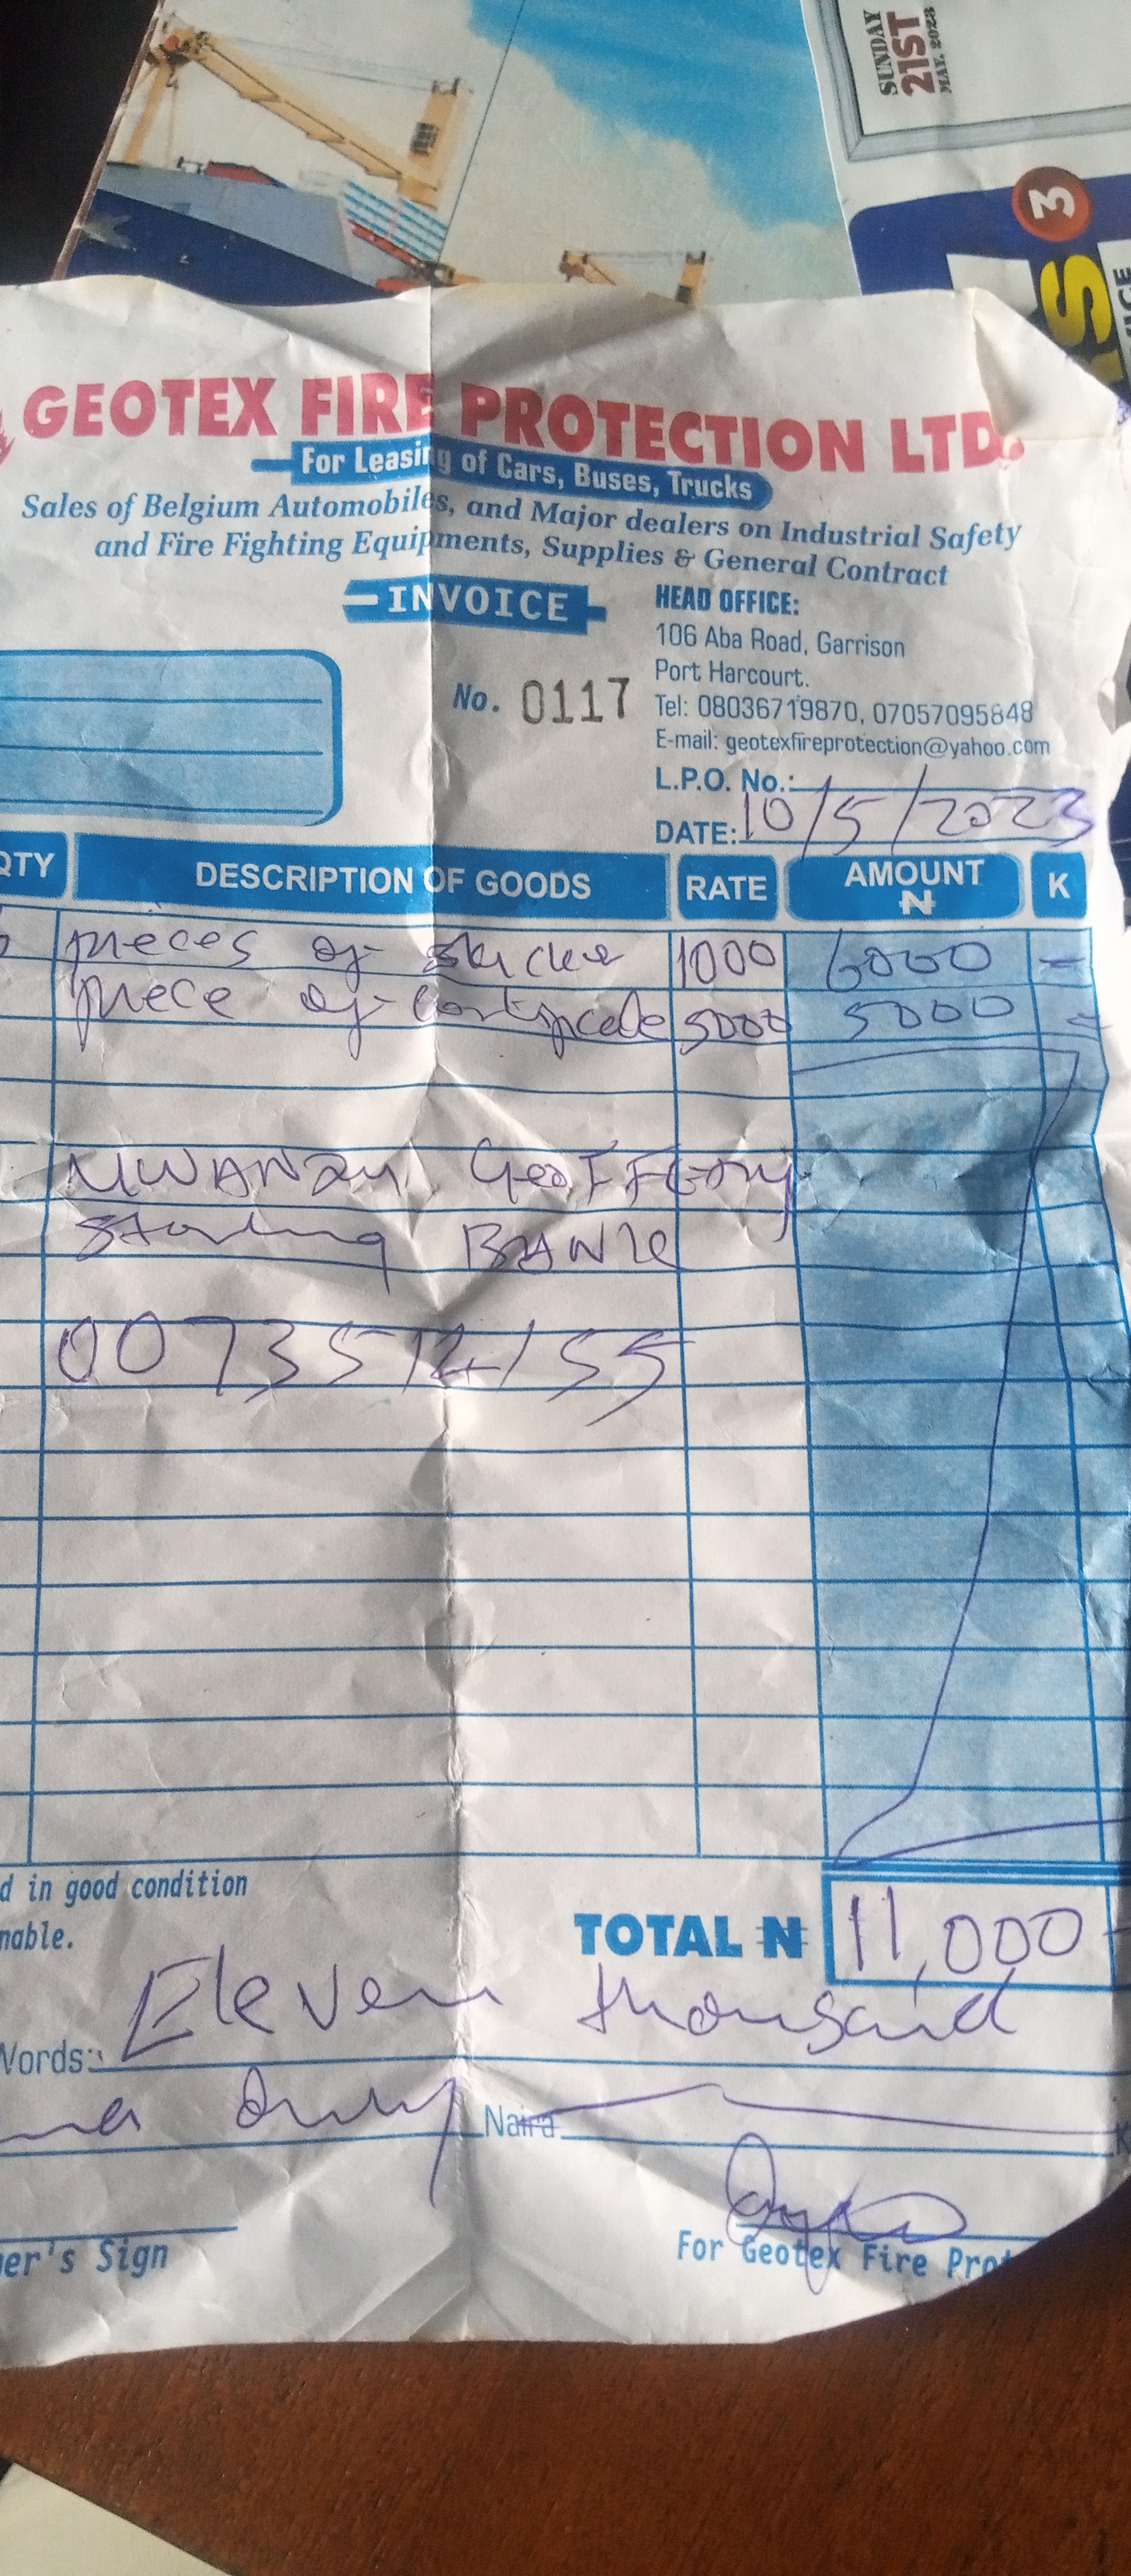 SUNDAY
21ST
MAY, 2023
3
GEOTEX FIRE PROTECTION LTD.
For Leasing of Cars, Buses, Trucks
Sales of Belgium Automobiles, and Major dealers on Industrial Safety
and Fire Fighting Equipments, Supplies & General Contract
INVOICE
HEAD OFFICE:
106 Aba Road, Garrison
Port Harcourt.
No. 0117
Tel: 08036719870, 07057095848
E-mail: geotexfireprotection@yahoo.com
L.P.O. No.:
DATE: 10/5/2023
QTY DESCRIPTION OF GOODS RATE AMOUNT ₦ K
pieces of 1000 6000 -
piece of 5000 5000 -
Geoffrey
BANK
d in good condition
nable.
TOTAL ₦ 11,000
Words: Eleven thousand
only Naira K
er's Sign
For Geotex Fire Prot